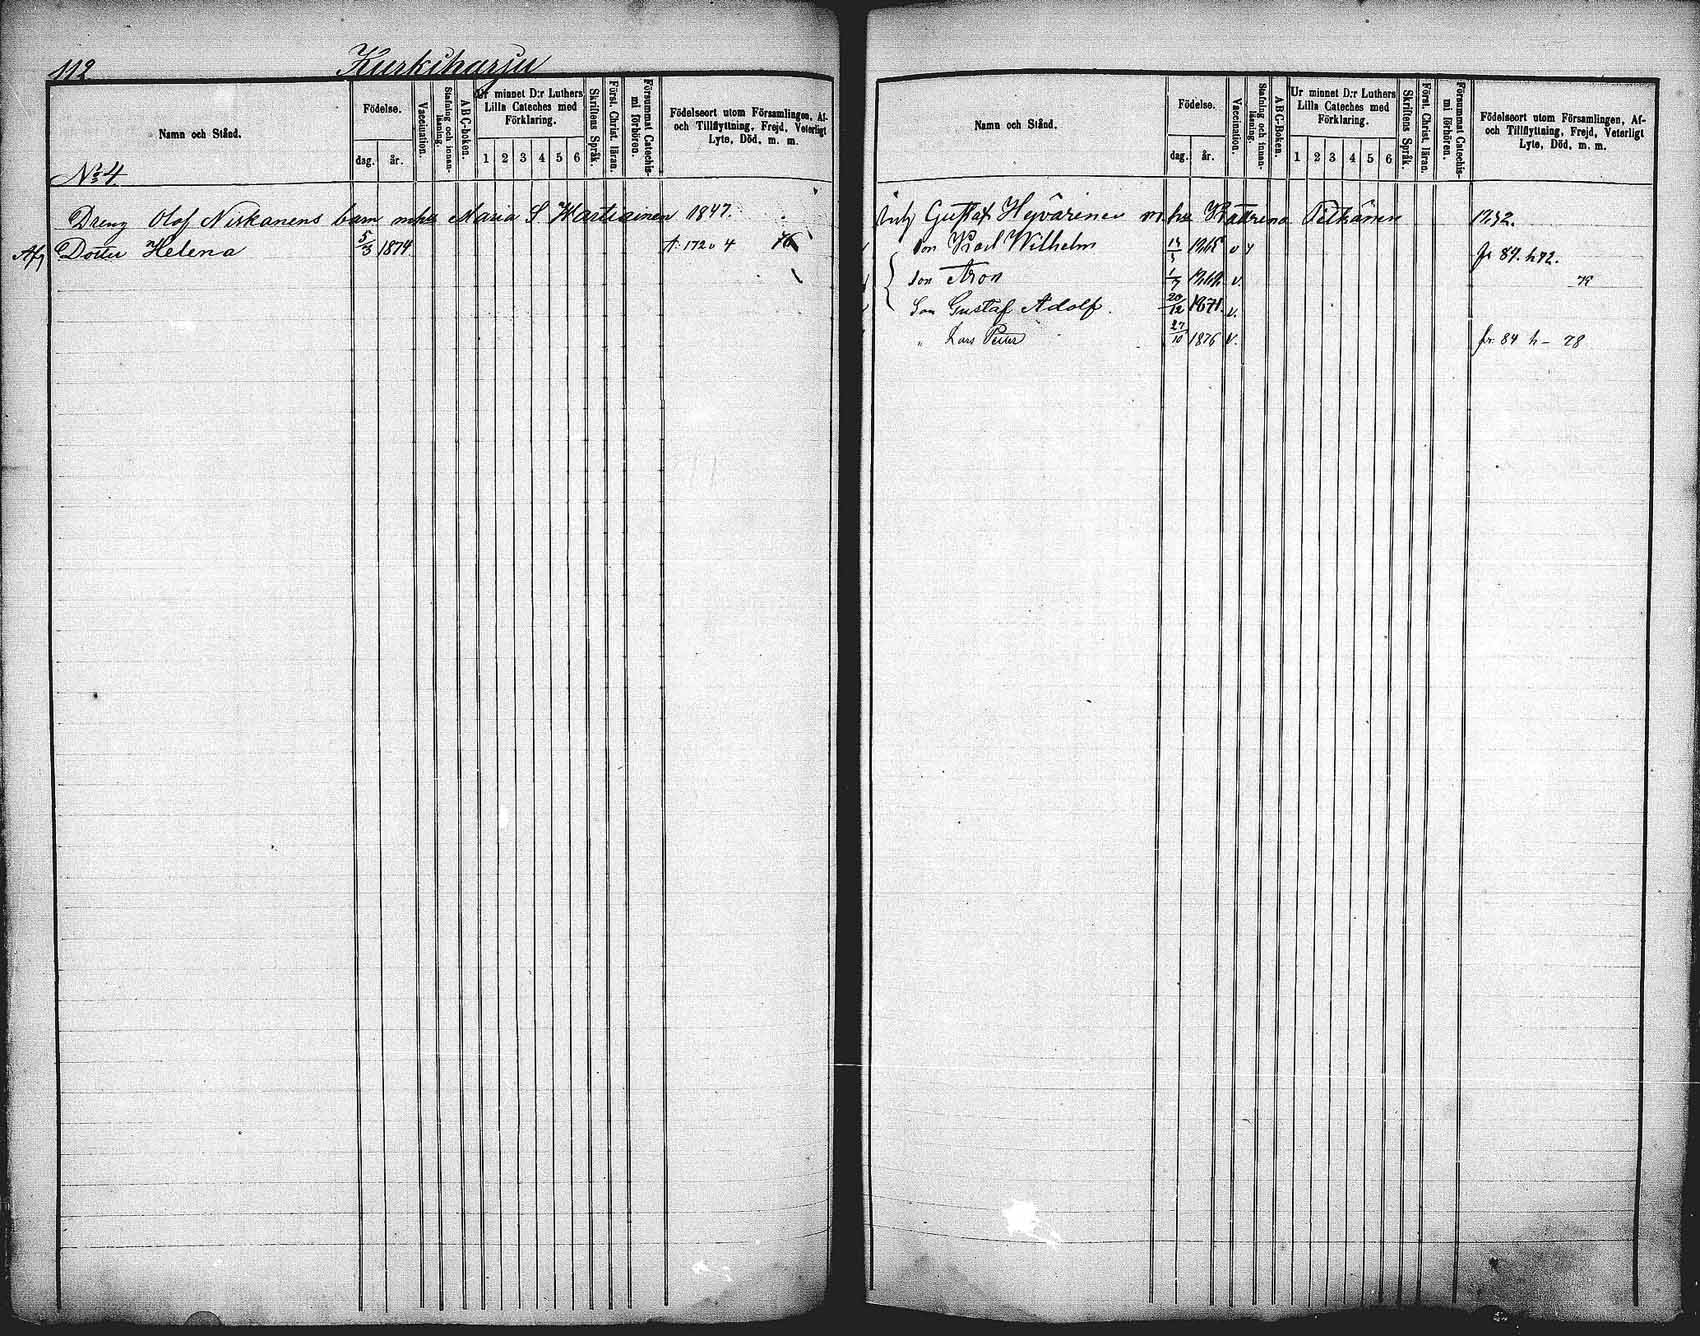 112 Kurkiharju
Namn och Stånd.
Födelse.
dag. år.
Vaccination.
Stafning och innan-läsning.
ABC-boken.
Ur minnet D:r Luthers
Lilla Cateches med
Förklaring.
1 2 3 4 5 6
Skriftens Språk.
Först. Christ. läran.
Försummat Catechis-mi förhören.
Födelseort utom Församlingen, Af-
och Tillflyttning, Frejd, Veterligt
Lyte, Död, m. m.
No 4
Dreng Olof Niskanens barn m hu Maria S Martiainen 1847.
Dotter Helena 5/3 1874
Namn och Stånd.
Födelse.
dag. år.
Vaccination.
Stafning och innan-läsning.
ABC-Boken.
Ur minnet D:r Luthers
Lilla Cateches med
Förklaring.
1 2 3 4 5 6
Skriftens Språk.
Först. Christ. läran.
Försummat Catechismi förhören.
Födelseort utom Församlingen, Af-
och Tillflyttning, Frejd, Veterligt
Lyte, Död, m. m.
Gustaf Hyvärinen m hu Katrina Pitkänen
Son Karl Wilhelm v fr 84. h 72.
Son Aron v.
Son Gustaf Adolf. 20/12 1871. v.
" Lars Petter 27/10 1876 v. fr. 84 h - 78